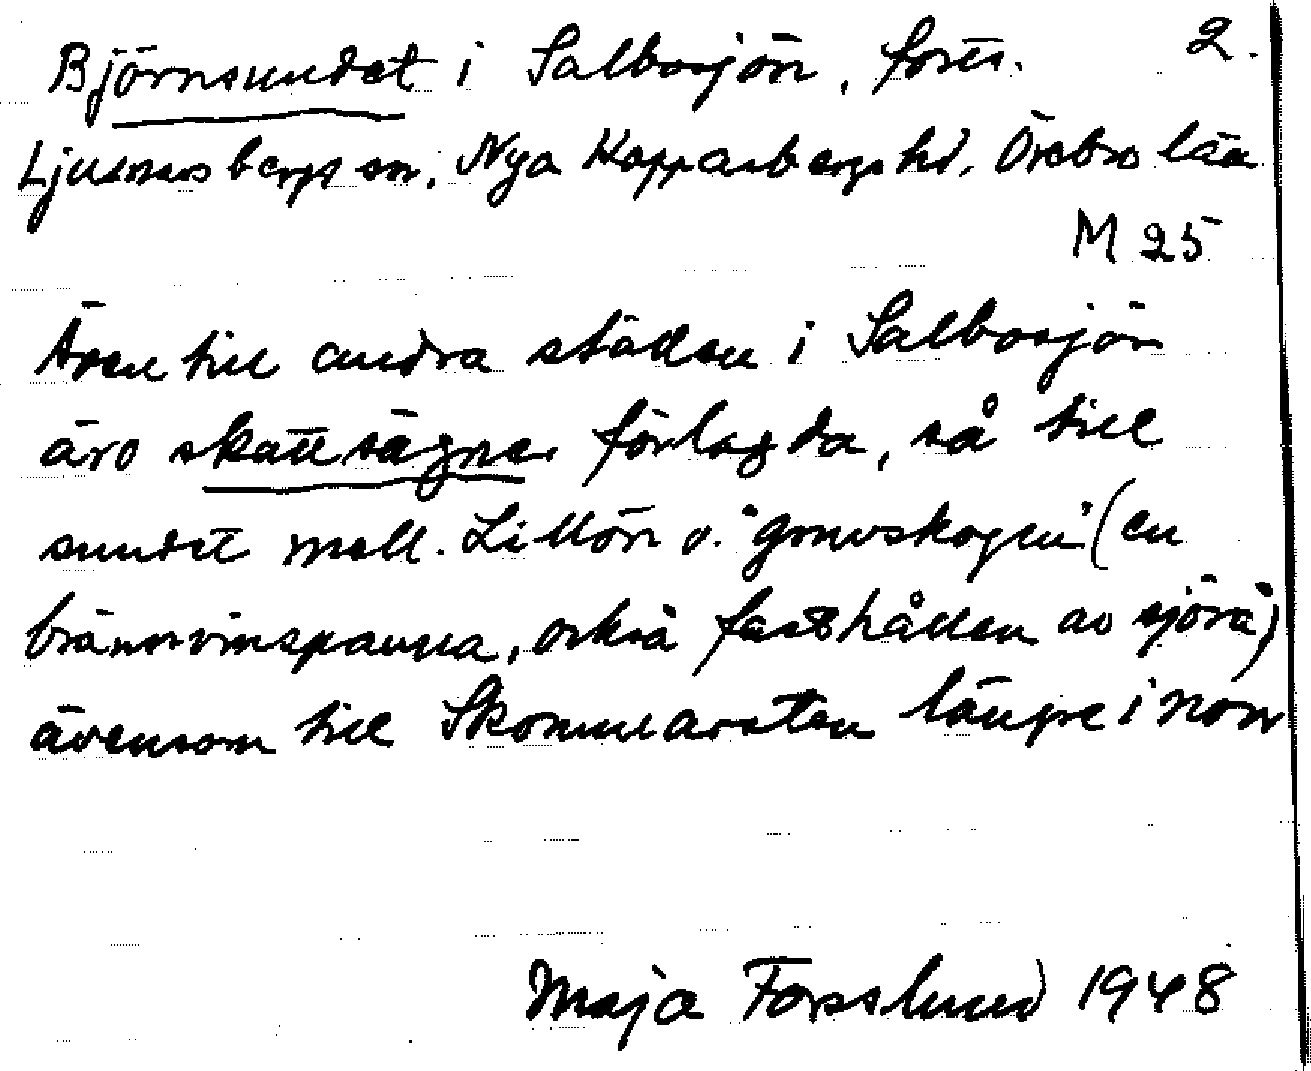 Björnsundet i Salbosjön, forts. 2.
Ljusnarsbergs sn. Nya Kopparbergs hd. Örebro län
M 25
Även till andra ställen i Salbosjön
äro skattsägner förlagda, så till
sundet mell. Lillön o. "gruvskogen" (en
brännvinspanna, också fasthållen av sjörå)
ävensom till längre i norr
Maja Forsslund 1948